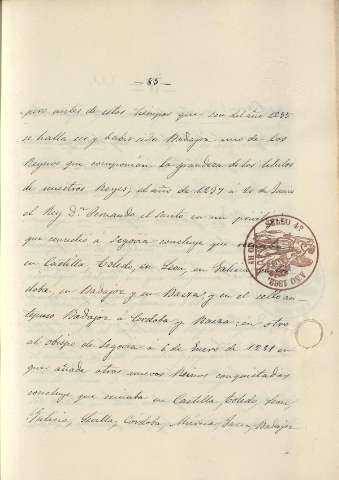 - 85 -
pero antes de estos tiempos que son del año 1235
se halla ser y haber sido Badajoz uno de los
Reynos que componian la grandeza de los titulos
de nuestros Reyes; el año de 1237 á 20 de
el Rey Dn. Fernando el Santo en un
que concedió a Segovia concluye que
en Castilla, Toledo, en Leon, en Galicia,
doba, en Badajoz y en Baeza y en el
Badajoz a Cordoba y Baeza: en otro
al obispo de Segovia á 6 de Enero de 1251 en
que añade otros nuevos Reinos conquistados
concluye que reinaba en Castilla, Toledo, Leon,
Galicia, Sevilla, Cordoba, Murcia, Jaen, Badajoz
SELLO 4º
AÑO 1883